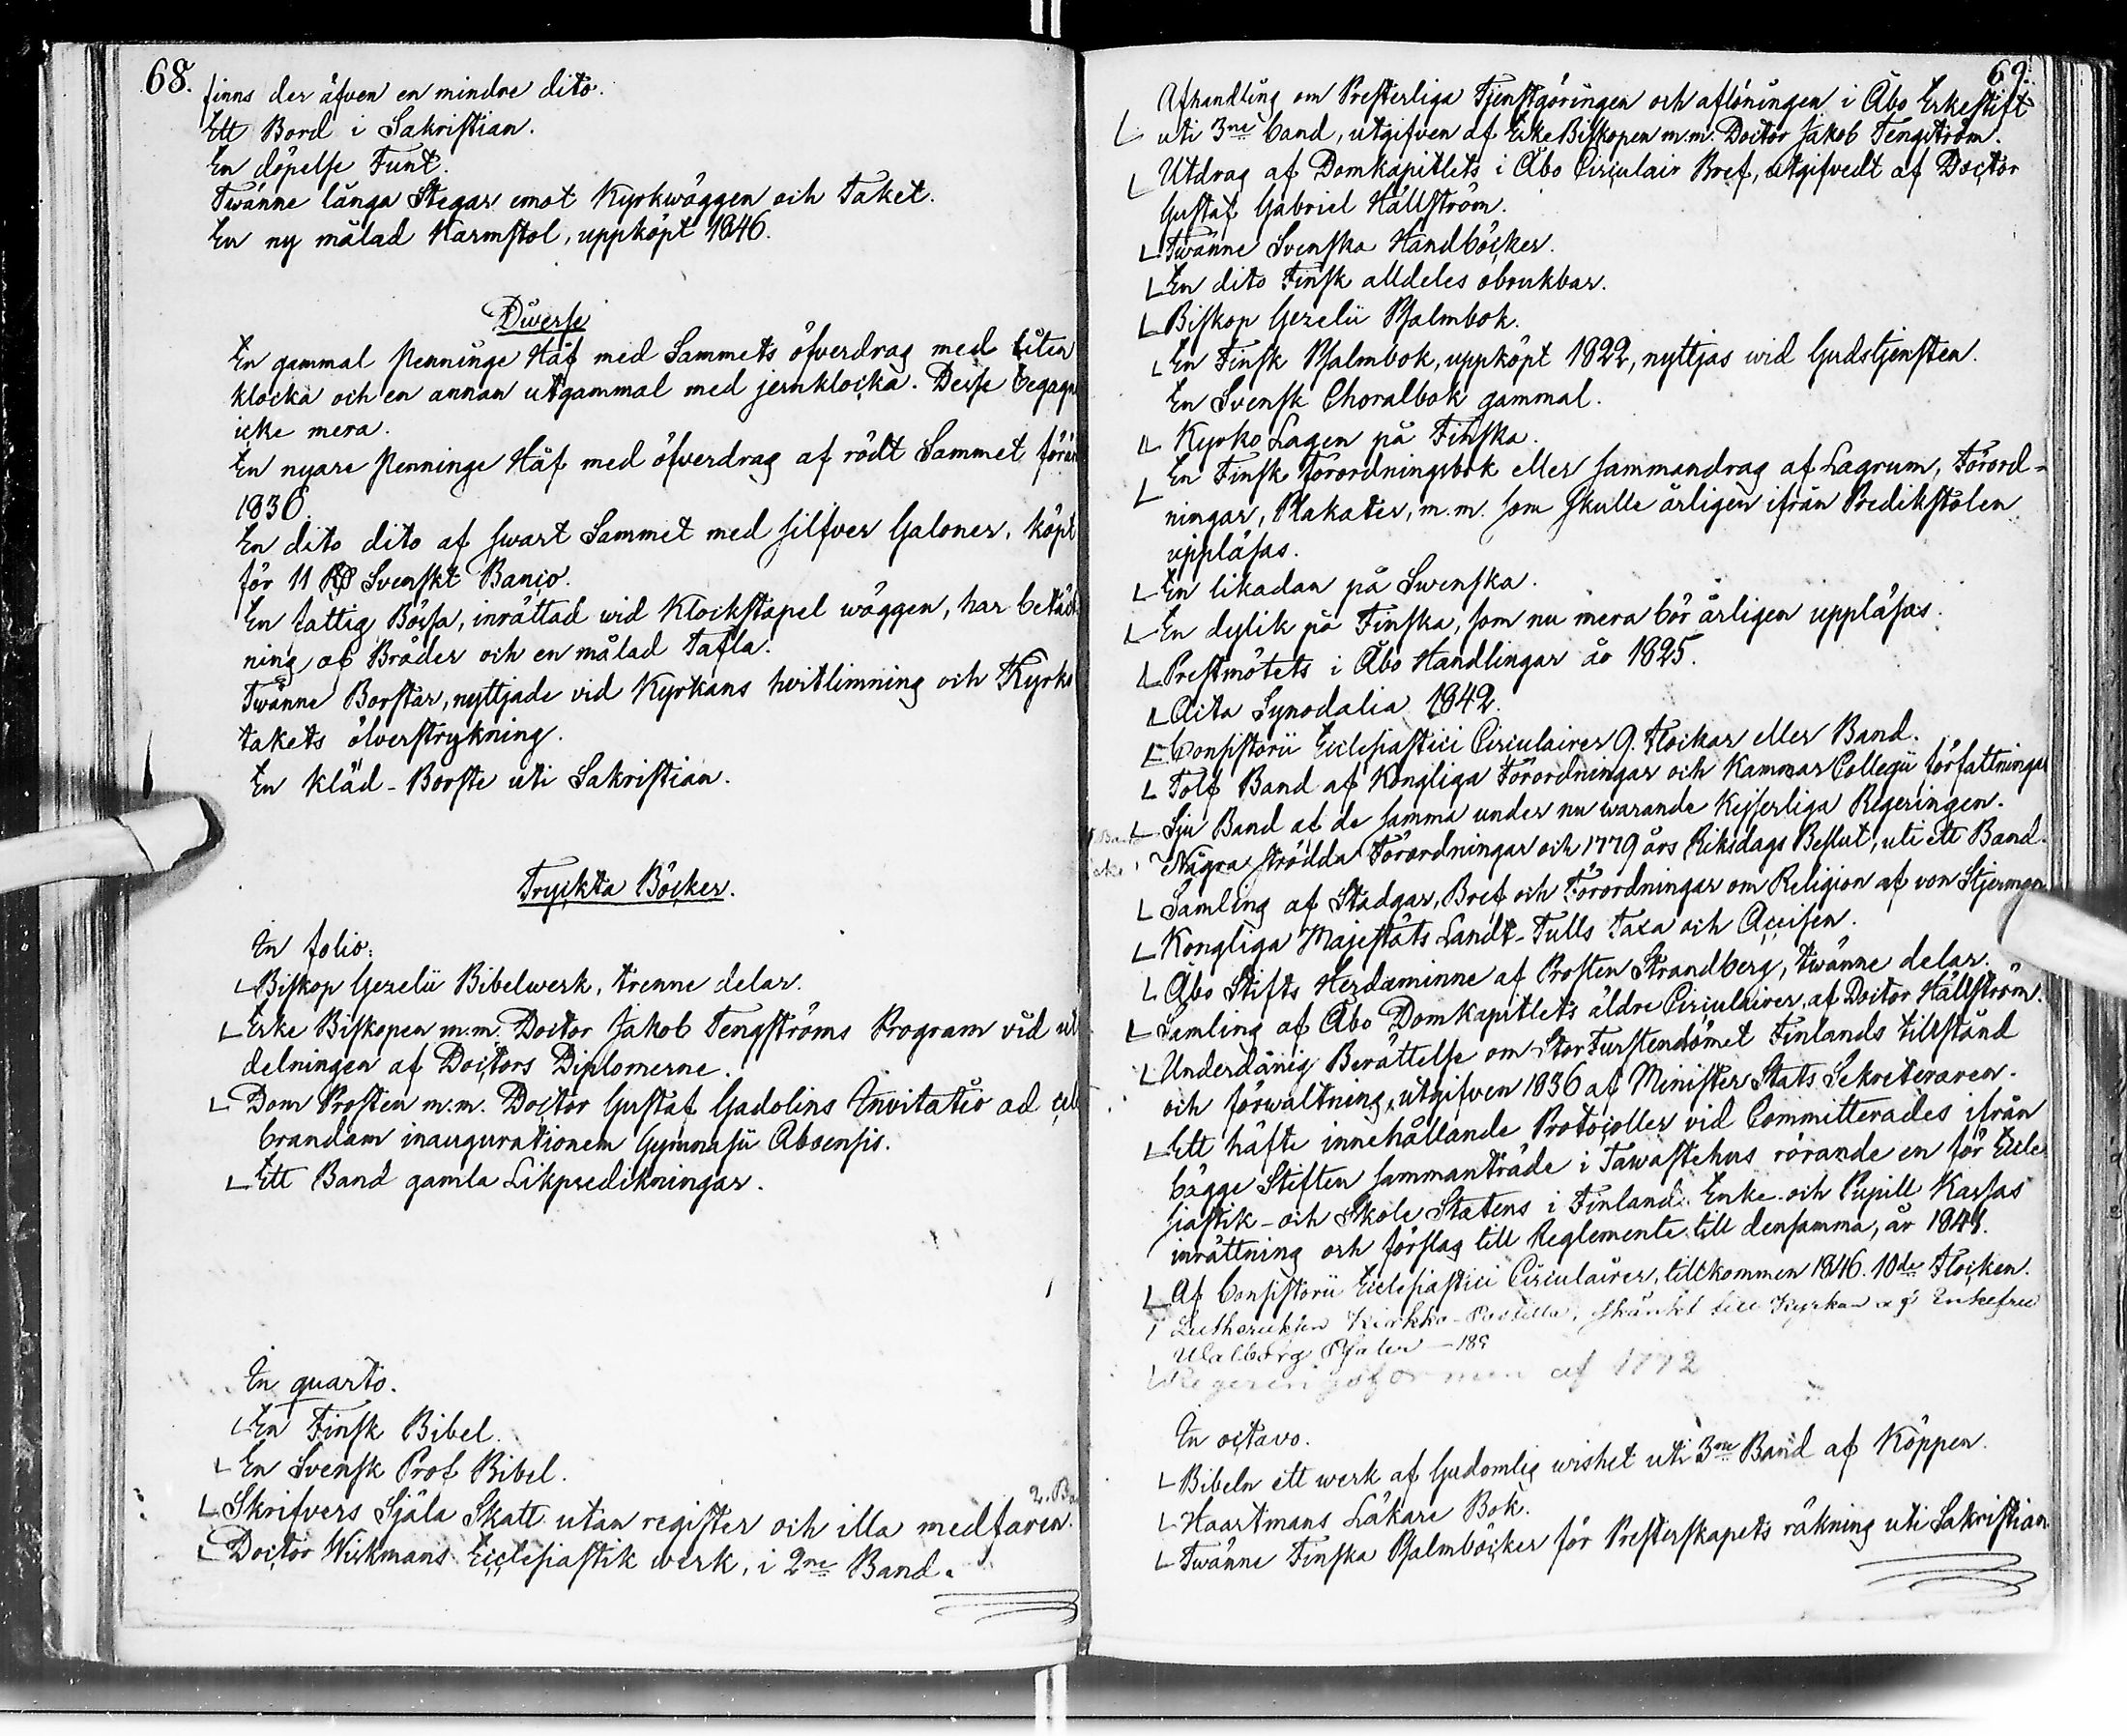 68.
finns der äfven en mindre dito.
Ett Bord i Sakristian.
En döpelse Funt.
Twänne långa Stegar emot Kyrkwäggen och Taket.
En ny målad Karmstol, uppköpt 1846.
Diverse
En gammal Penninge Håf med Sammets öfverdrag med liten
klocka och en annan utgammal med jernklocka. Desse begagn
icke mera.
En nyare Penninge Håf med öfverdrag af rödt Sammet förär
1836.
En dito dito af swart Sammet med silfver Galoner, köpt
för 11 Svenskt Banco.
En fattig Bössa, inrättad wid Klockstapel wäggen, har betäck
ning af Bräder och en målad Tafla.
Twänne Borstar, nyttjade vid Kyrkans hvitlimning och Kyrko
takets ölverstrykning.
En kläd-Borste uti Sakristian.
Tryckta Böcker.
In folio:
Biskop Gezelii Bibelwerk, trenne delar.
Erke Biskopen m.m. Doctor Jakob Tengströms Program vid ut
delningen af Doctors Diplomerne.
Dom Prosten m.m. Doctor Gustaf Gadolins Invitatio ad cele
brandam inaugurationem Gymnasii Aboensis.
Ett Band gamla Likpredikningar.
In quarto.
En Finsk Bibel.
En Svensk Prof Bibel.
2. Ba
Skrifvers Själa Skatt utan register och illa medfaren.
Doctor Wirkmans Ecclesiastik werk, i 2ne Band.
69.
Afhandling om Presterliga Tjenstgöringen och aflöningen i Åbo Erkestift
uti 3ne band, utgifven af ErkeBiskopen m.m. Doctor Jakob Tengström.
Utdrag af Domkapitlets i Åbo Circulair Bref, utgifvedt af Doctor
Gustaf Gabriel Hällström.
Twänne Svenska Handböcker.
En dito Finsk alldeles obrukbar.
Biskop Gezelii Psalmbok.
En Finsk Psalmbok, uppköpt 1822, nyttjas wid Gudstjensten.
En Svensk Choralbok gammal.
Kyrko Lagen på Finska.
En Finsk Förordningsbok eller sammandrag af Lagrum, Förord-
ningar, Plakater, m.m. som skulle årligen ifrån Predikstolen
uppläsas.
En likadan på Swenska.
En dylik på Finska, som nu mera bör årligen uppläsas.
Prestmötets i Åbo Handlingar år 1825.
Acta Synodalia 1842.
Consistorii Ecclesiastici Circulairer 9. Flockar eller Band.
Tolf Band af Kongliga Förordningar och Kammar Collegii författningar
Sju Band af de samma under nu warande Kejserliga Regeringen.
Några strödda Förordningar och 1779 års Riksdags Beslut, uti ett Band.
Samling af Stadgar, Bref och Förordningar om Religion af von Stjernman
Kongliga Majestäts Landt-Tulls Taxa och Accisen.
Åbo Stifts Herdaminne af Prosten Strandberg, twänne delar.
Samling af Åbo Domkapitlets äldre Circulairer, af Doctor Hällström.
Underdånig Berättelse om StorFurstendömet Finlands tillstånd
och förwaltning, utgifven 1836 af Minister Stats Sekreteraren.
Ett häfte innehållande Protocoller vid Committerades ifrån
bägge Stiften sammanträde i Tawastehus rörande en för Eccle
siastik- och Skole Statens i Finland Enke- och Pupill Kassas
inrättning och förslag till Reglemente till densamma, år 1841.
Af Consistorii Ecclesiastici Circulairer, tillkommen 1846. 10de Flocken.
Lutheruksen Kirkko-Postilla, skänkt till Kyrkan af Enkefru
Walborg Psaler — 189
Regeringsformen af 1772
In octavo.
Bibeln ett werk af Gudomlig wishet uti 3ne Band af Köppen.
Haartmans Läkare Bok.
Twänne Finska Psalmböcker för Presterskapets räkning uti Sakristian